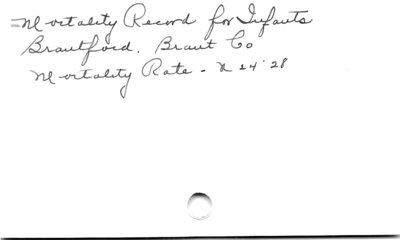 =Mortality Record for Infants
Brantford. Brant Co
Mortality Rate - N 24 '28